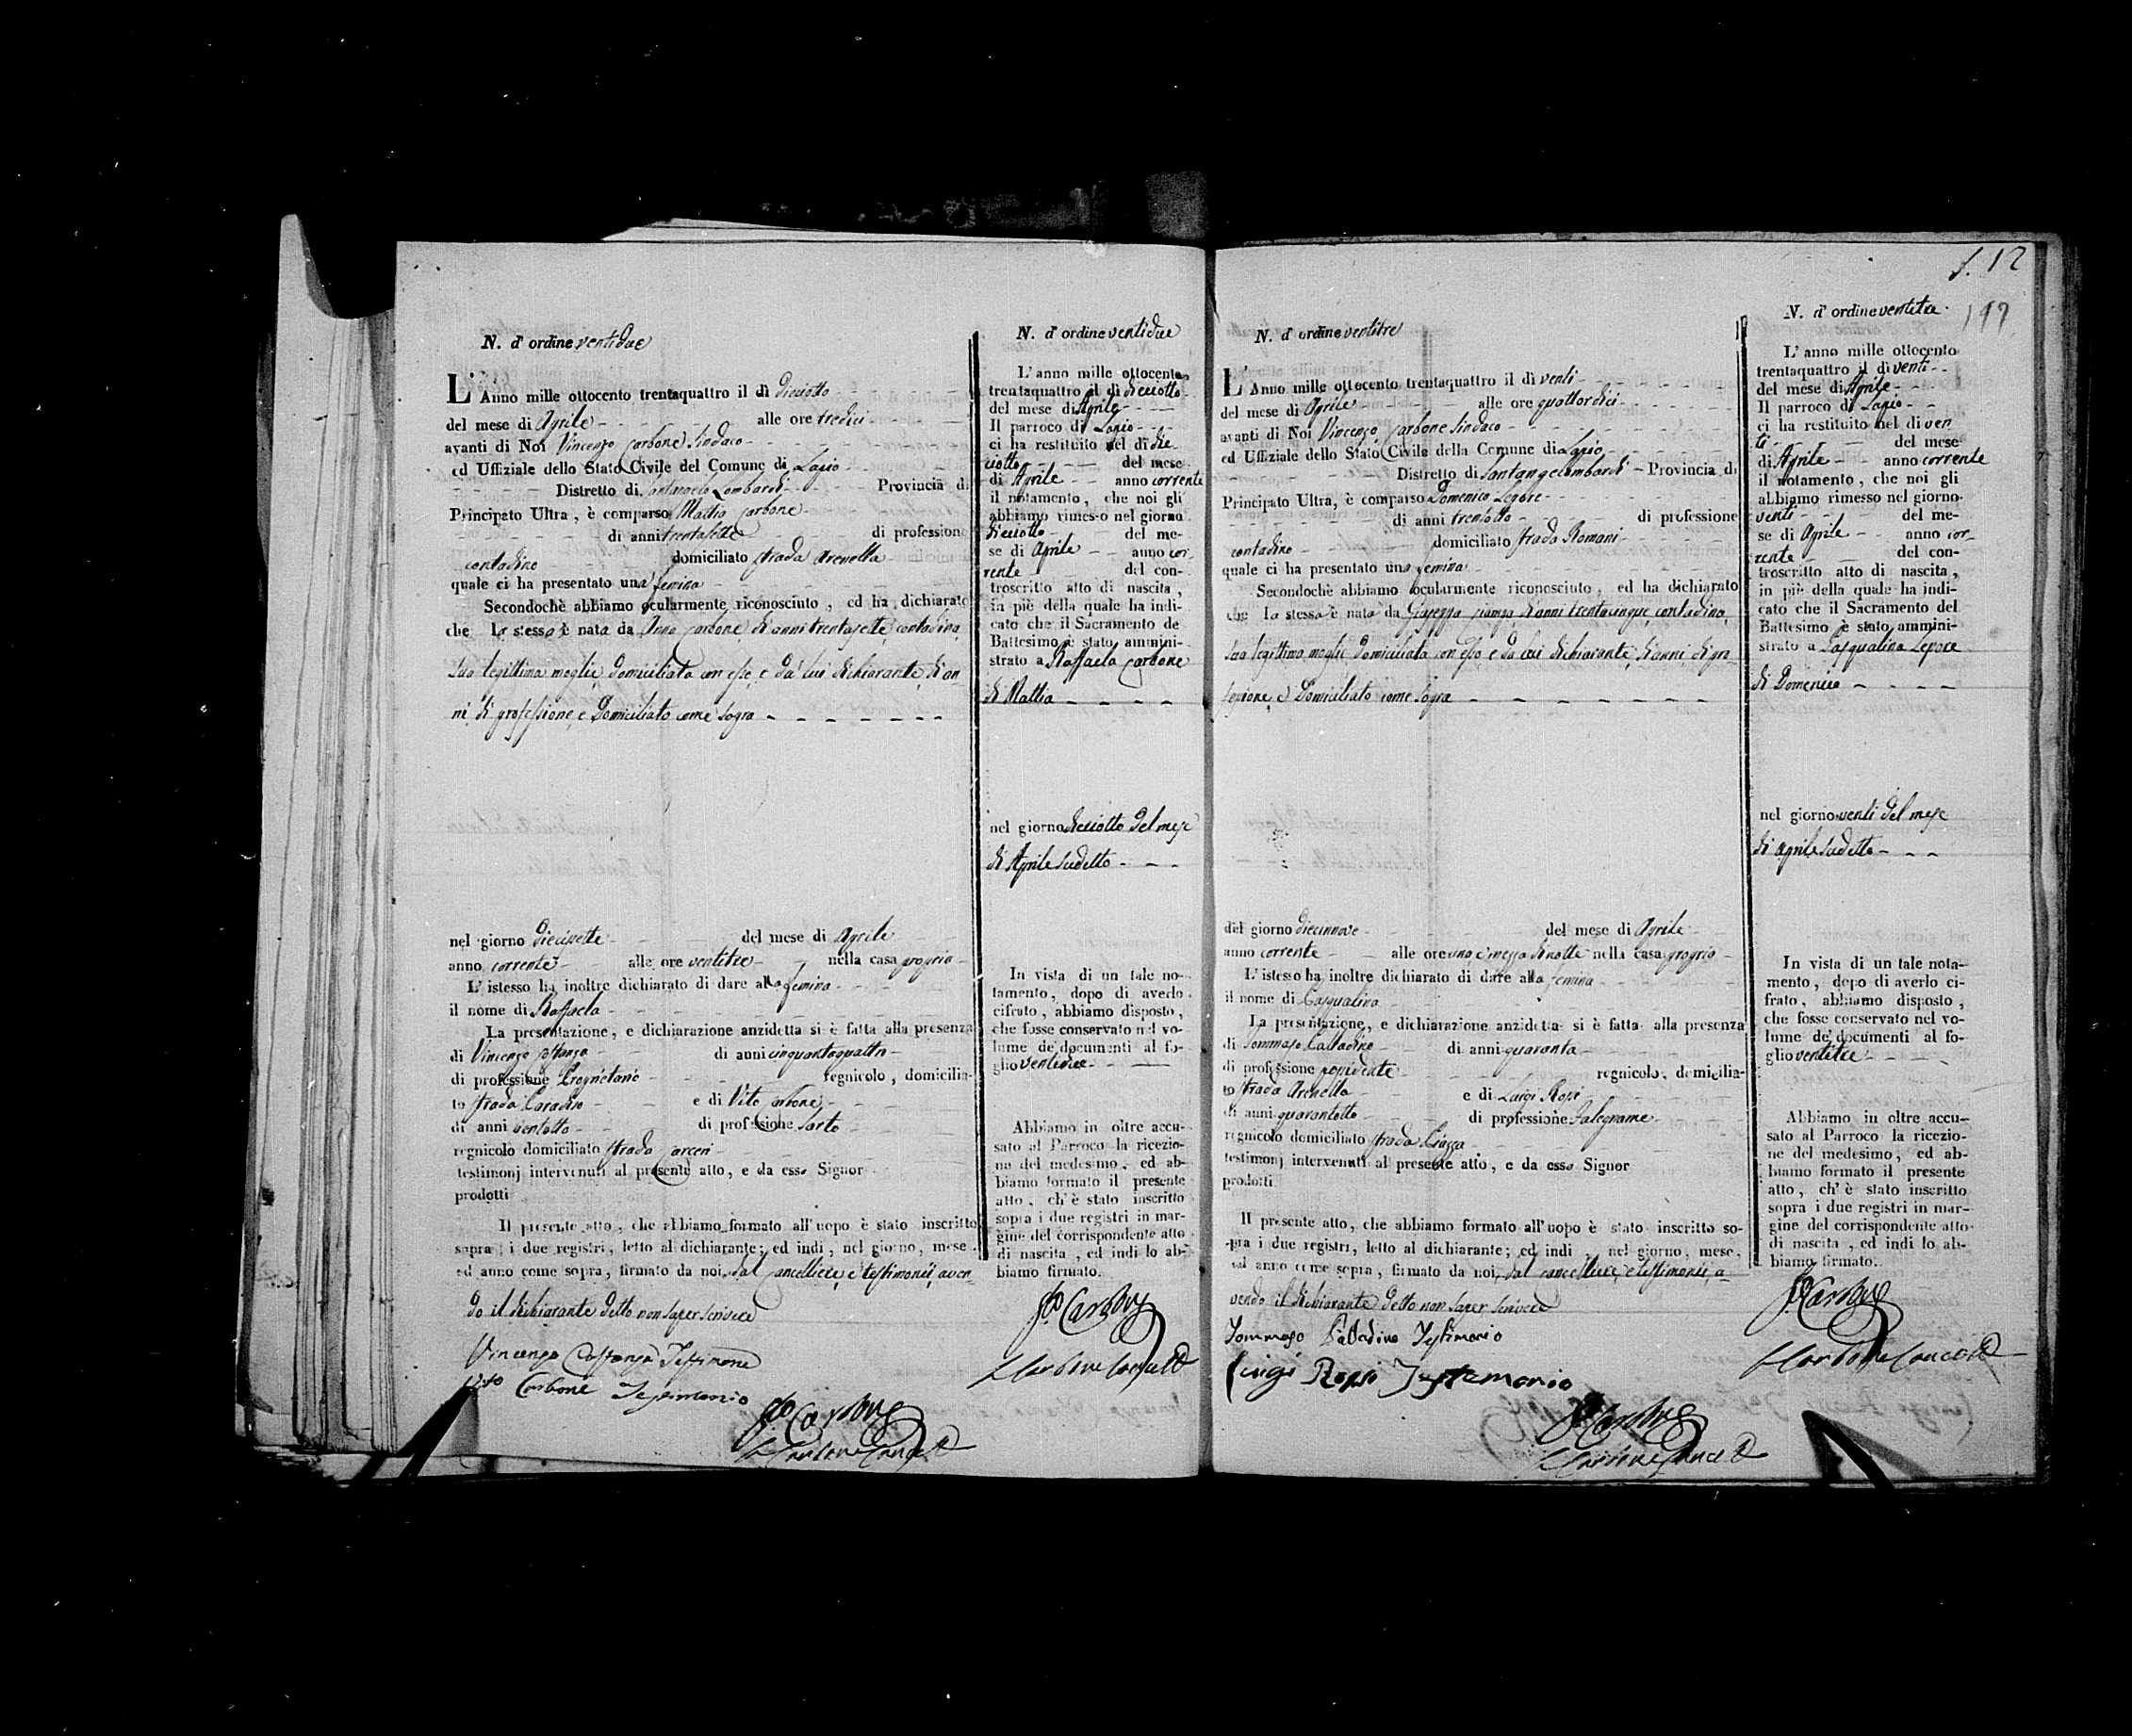 N. d'ordine ventidue
L'Anno mille ottocento trentaquattro il dì dicciotto
del mese di Aprile alle ore tredici
avanti di Noi Vincenzo Carbone Sindaco
ed Uffiziale dello Stato Civile del Comune di Lapio
Distretto di Santangelo Lombardi Provincia di
Principato Ultra, è comparso Mattia Carbone
di anni trentasette di professione
contadino domiciliato strada Arenella
quale ci ha presentato una femina
Secondochè abbiamo ocularmente riconosciuto, ed ha dichiarato
che la stessa è nata da Anna Carbone di anni trentasette, contadina,
sua legittima moglie, domiciliata con esso, e da lui dichiarante, di an-
ni, di professione, e domiciliato come sopra
nel giorno diecisette del mese di Aprile
anno corrente alle ore ventitre nella casa propria
L'istesso ha inoltre dichiarato di dare alla femina
il nome di Raffaela
La presentazione, e dichiarazione anzidetta si è fatta alla presenza
di Vincenzo Costanza di anni cinquantaquattro
di professione Proprietario regnicolo, domicilia-
to strada Paradiso e di Vito Carbone
di anni ventotto di professione Sarto
regnicolo domiciliato strada Carceri
testimonj intervenuti al presente atto, e da esso Signor
prodotti
Il presente atto, che abbiamo formato all'uopo è stato inscritto
sopra i due registri, letto al dichiarante; ed indi, nel giorno, mese
ed anno come sopra, firmato da noi, dal Cancelliere, e testimonii, aven-
do il dichiarante detto non saper scrivere
Vincenzo Costanza Testimone
Vito Carbone Testimonio
Carbone
Carbone Canc
N. d'ordine ventidue
L'anno mille ottocento
trentaquattro il dì dicciotto
del mese di Aprile
Il parroco di Lapio
ci ha restituito nel dì dic-
ciotto del mese
di Aprile anno corrente
il notamento, che noi gli
abbiamo rimesso nel giorno
dicciotto del me-
se di Aprile anno cor-
rente del con-
troscritto atto di nascita,
in piè della quale ha indi-
cato che il Sacramento de
Battesimo è stato ammini-
strato a Raffaela Carbone
di Mattia
nel giorno dicciotto del mese
di Aprile sudetto
In vista di un tale no-
tamento, dopo di averlo
cifrato, abbiamo disposto,
che fosse conservato nel vo-
lume de' documenti al fo-
glio ventidue
Abbiamo in oltre accu-
sato al Parroco la ricezio-
ne del medesimo, ed ab-
biamo formato il presente
atto, ch'è stato inscritto
sopra i due registri in mar-
gine del corrispondente atto
di nascita, ed indi lo ab-
biamo firmato.
Carbone
Carbone Canc
f. 12
N. d'ordine ventitre
L'Anno mille ottocento trentaquattro il dì venti
del mese di Aprile alle ore quattordici
avanti di Noi Vincenzo Carbone Sindaco
ed Uffiziale dello Stato Civile della Comune di Lapio
Distretto di Santangelombardi Provincia di
Principato Ultra, è comparso Domenico Lepore
di anni trentotto di professione
contadino domiciliato strada Romani
quale ci ha presentato una femina
Secondochè abbiamo ocularmente riconosciuto, ed ha dichiarato
che la stessa è nata da di anni trentacinque, contadina,
sua legittima moglie domiciliata con esso e da lui dichiarante, di anni, di pro-
fessione, e domiciliato come sopra
del giorno diecinnove del mese di Aprile
anno corrente alle ore una e mezza di notte nella casa propria
L'istesso ha inoltre dichiarato di dare alla femina
il nome di Pasqualina
La presentazione, e dichiarazione anzidetta si è fatta alla presenza
di Tommaso Calladino di anni quaranta
di professione possidente regnicolo, domicilia-
to strada Arenella e di Luigi Rossi
di anni quarantotto di professione Falegname
regnicolo domiciliato strada Piazza
testimonj intervenuti al presente atto, e da esso Signor
prodotti
Il presente atto, che abbiamo formato all'uopo è stato inscritto so-
pra i due registri, letto al dichiarante; ed indi, nel giorno, mese,
ed anno come sopra, firmato da noi, dal cancelliere, e testimonii, a-
vendo il dichiarante detto non saper scrivere
Tommaso Calladino Testimonio
Luigi Rossi Testemonio
Carbone
Carbone Canc
N. d'ordine ventitre
L'anno mille ottocento
trentaquattro il dì venti
del mese di Aprile
Il parroco di Lapio
ci ha restituito nel dì ven
ti del mese
di Aprile anno corrente
il notamento, che noi gli
abbiamo rimesso nel giorno
venti del me-
se di Aprile anno cor-
rente del con-
troscritto atto di nascita,
in piè della quale ha indi-
cato che il Sacramento del
Battesimo è stato ammini-
strato a Pasqualina Lepore
di Domenico
nel giorno venti del mese
di Aprile sudetto
In vista di un tale nota-
mento, dopo di averlo ci-
frato, abbiamo disposto,
che fosse conservato nel vo-
lume de' documenti al fo-
glio ventitre
Abbiamo in oltre accu-
sato al Parroco la ricezio-
ne del medesimo, ed ab-
biamo formato il presente
atto, ch'è stato inscritto
sopra i due registri in mar-
gine del corrispondente atto
di nascita, ed indi lo ab-
biamo firmato.
Carbone
Carbone Canc